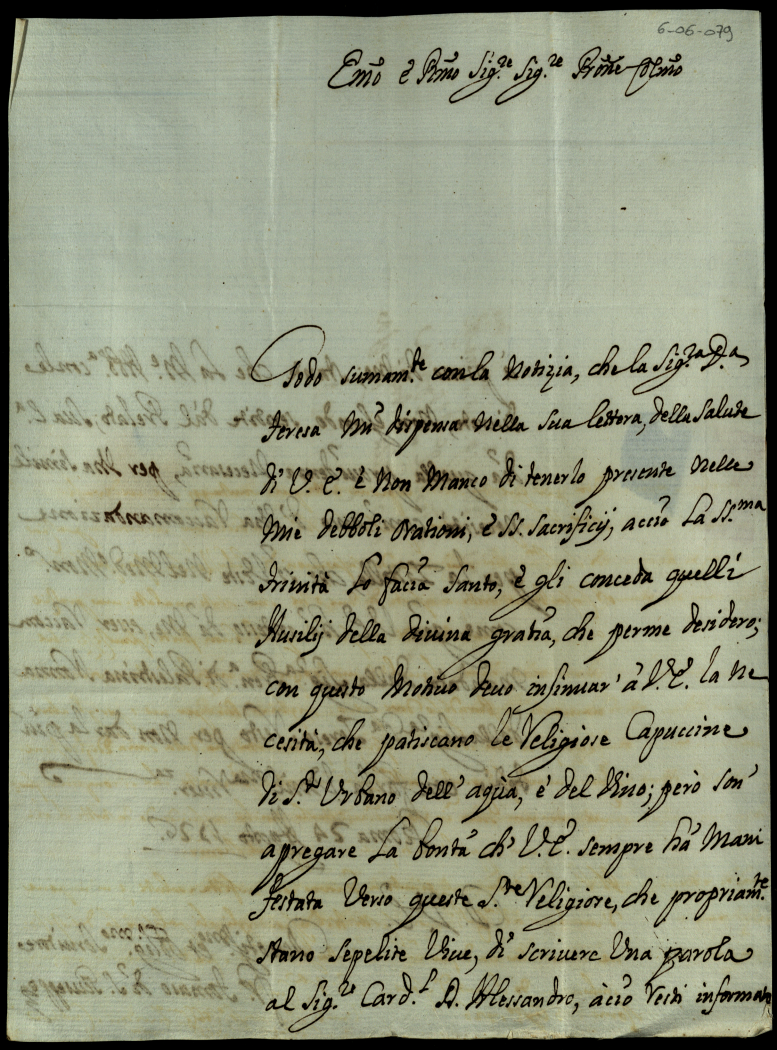 6-06-079
Em̃o è Rm̃o Sig.re Sig.re Prõne Colmõ
Godo sumam.te con la Notizia, che la Sig.ra D.a
Teresa mi dispensa nella sua lettera, della salute
di V. E. è non manco di tenerlo presente nelle
mie debboli orationi, è SS. sacrificij, acciò la SS.ma
Trinità lo faccia santo, è gli conceda quelli
Ausilij della divina gratia, che per me desidero;
con questo motivo devo insinuar' à V. E. la ne
cesità, che patiscano le Religiose Capuccine
di S.t Urbano dell' aqua, è del vino; però son'
a pregare la bontà ch' V. E. sempre hà mani
festata verso queste S.te Religiose, che propriam.te
stano sepelite vive, di scrivere una parola
al Sig.re Card.l D. Alessandro, à ciò resti informato